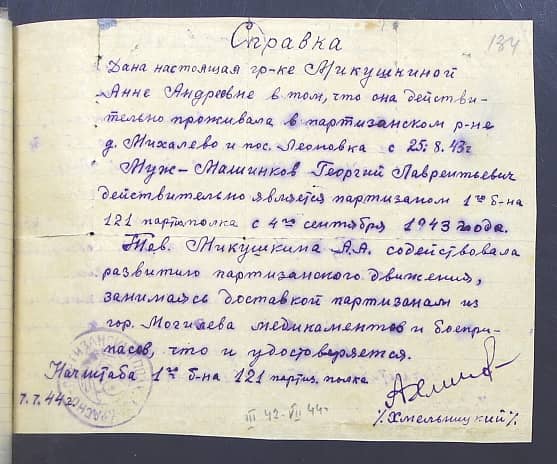 Справка
134
Дана настоящая гр-ке Микушкиной
Анне Андреевне в том, что она действи-
тельно проживала в партизанском р-не
д. Михалево и пос. Леоновка с 25.8.43г.
Муж – Машинков Георгий Лаврентьевич
действительно является партизаном 1го б-на
121 партполка с 4го сентября 1943 года.
Тов. Микушкина А.А. содействовала
развитию партизанского движения,
занимаясь доставкой партизанам из
гор. Могилева медикаментов и боепри-
пасов, что и удостоверяется.
Начштаба 1го б-на 121 партиз. полка
7.7.44г.
/Хмельницкий/.
III 42 - VII 44г.